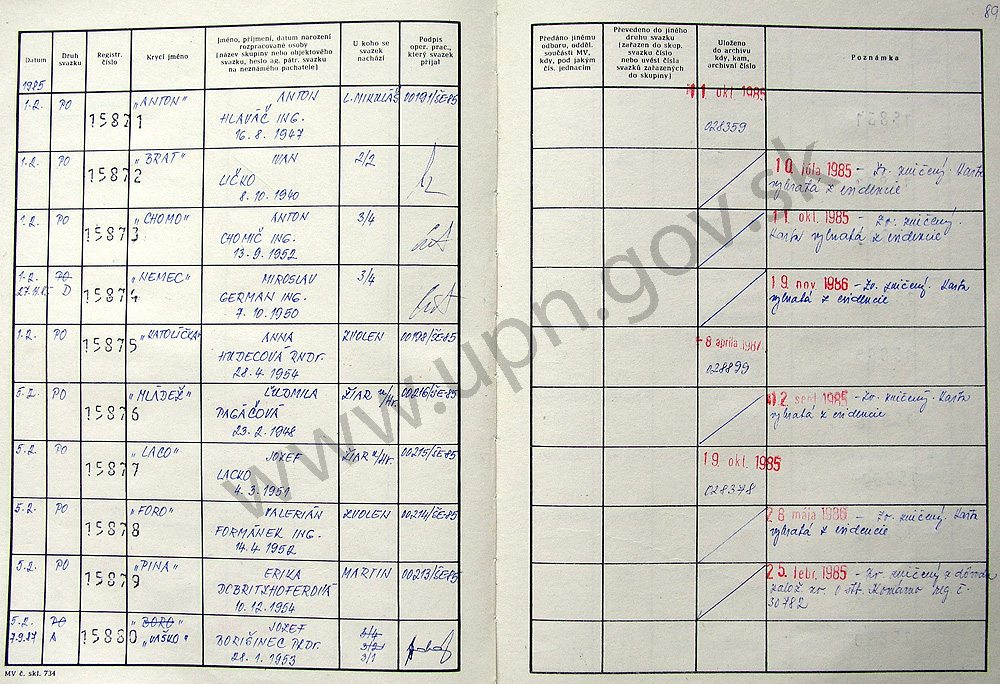 89
Datum
Druh svazku
Registr. číslo
Krycí jméno
Jméno, příjmení, datum narození
rozpracované osoby
(název skupiny nebo objektového
svazku, heslo ag. pátr. svazku
na neznámého pachatele)
U koho se
svazek
nachází
Podpis
oper. prac.,
který svazek
přijal
Předáno jinému
odboru, odděl.
součásti MV,
kdy, pod jakým
čís. jednacím
Převedeno do jiného
druhu svazku
(zařazen do skup.
svazku číslo
nebo uvést čísla
svazků zařazených
do skupiny)
Uloženo
do archivu
kdy, kam,
archivní číslo
Poznámka
1985
1.2. PO 15871 "ANTON" ANTON L. MIKULÁŠ 00191/ŠE-85 11. okt. 1985
HLAVÁČ ING. 028359
16.8. 1947
1.2. PO 15872 "BRAT" IVAN 2/2 10. júla 1985 - Zv. zničený. Karta
LIČKO vybratá z evidencie
8.10. 1940
1.2. PO 15873 "CHOMO" ANTON 3/4 11. okt. 1985 - Zv. zničený.
CHOMIČ ING. Karta vybratá z evidencie
13.9. 1952
1.2. PO 15874 "NEMEC" MIROSLAV 3/4 19. nov. 1986 - Zv. zničený. Karta
D GERMAN ING. vybratá z evidencie
7.10. 1950
1.2. PO 15875 "KATOLÍČKA" ANNA ZVOLEN 00198/ŠE-85 -8 apríla 1987
HUDECOVÁ RNDr. 028899
28.4. 1954
5.2. PO 15876 "MLÁDEŽ" ĽUDMILA ŽIAR n/Hr. 00216/ŠE-85 12. sept. 1985 - Zv. zničený. Karta
PAGÁČOVÁ vybratá z evidencie
23.2. 1948
5.2. PO 15877 "LACO" JOZEF ŽIAR n/Hr. 00215/ŠE-85 19. okt. 1985
LACKO 028378
4.3. 1951
5.2. PO 15878 "FORO" VALERIÁN ZVOLEN 00214/ŠE-85 28 mája 1986 - Zv. zničený. Karta
FORMÁNEK ING. vybratá z evidencie
14.4. 1952
5.2. PO 15879 "PINA" ERIKA MARTIN 00213/ŠE-85 25. febr. 1985 - Zv. zničený z dôvodu
DOBRITZHOFEROVÁ založ. zv. Komárno reg č.
10.12. 1954 30782
5.2. PO 15880 "BORO" JOZEF 3/4
7.9.87 A "VAŠKO" BORIŠINEC PROF. 3/2
28.1. 1953 3/1
MV č. skl. 734
www.upn.gov.sk